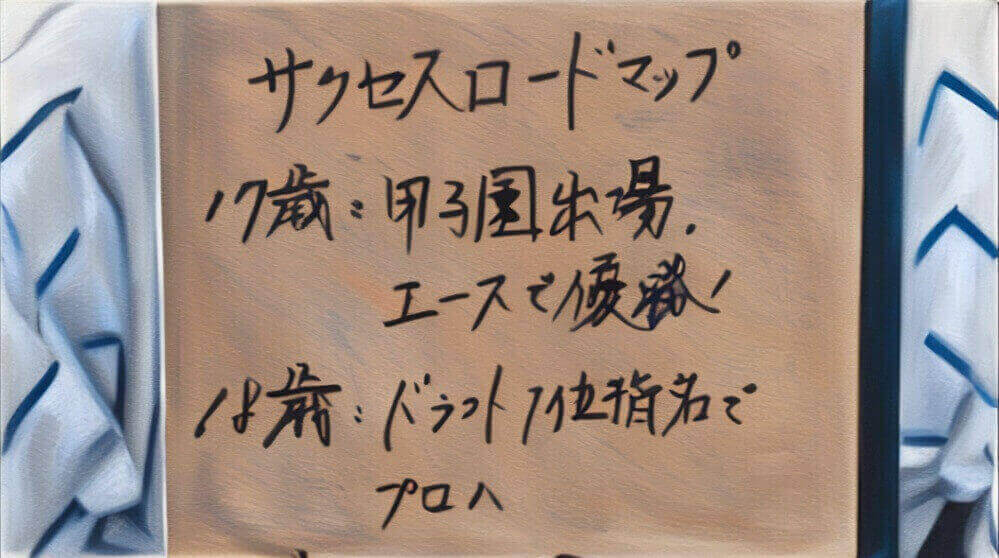 サクセスロードマップ
17歳：甲子園出場．
エースで優勝！
18歳：ドラフト1位指名で
プロへ